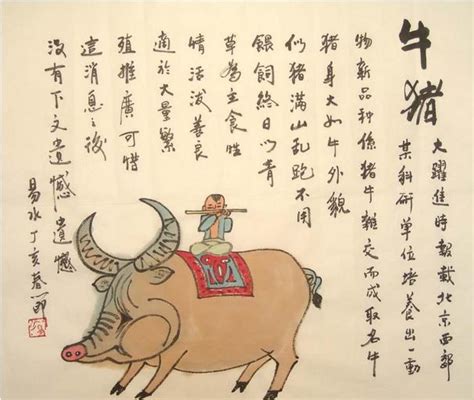 牛猪
大躍進時報載北京西郊
某科研單位培養出一動
物新品种係猪牛雜交而成取名牛
猪身大如牛外貌
似猪满山乱跑不用
餵飼终日以青
草為主食性
情活泼善良
適於大量繁
殖推廣可惜
這消息之後
没有下文遗憾遗憾
易水丁亥春